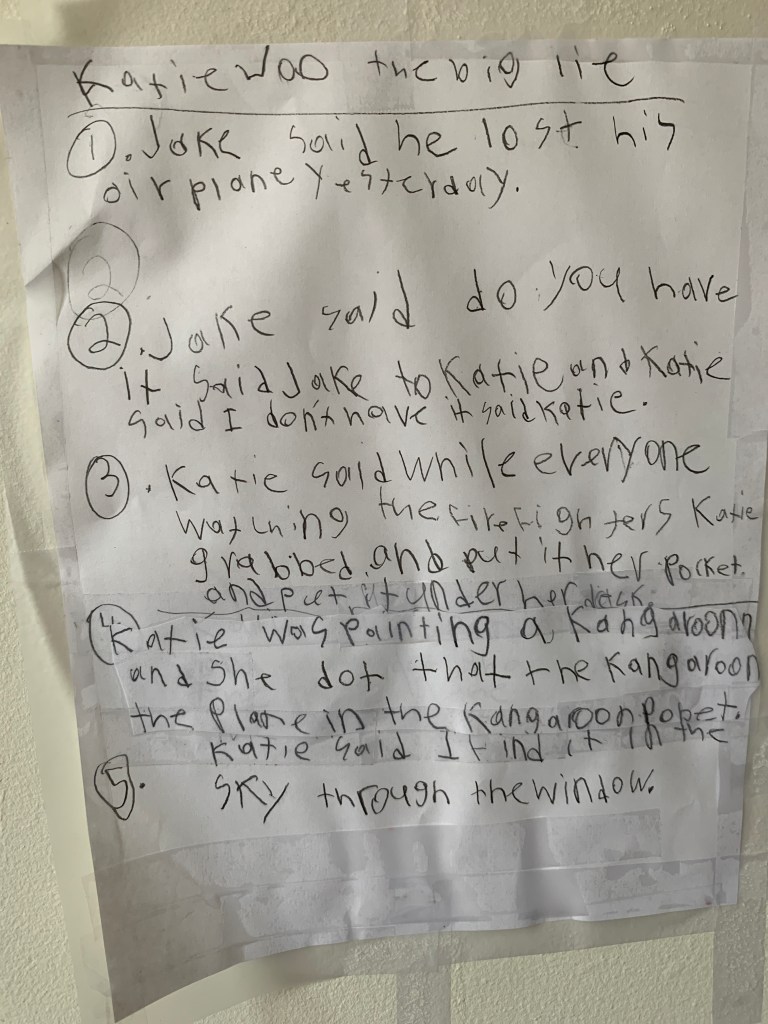 Katie Woo the big lie
1. Jake said he lost his
airplane yesterday.
2
2. Jake said do you have
it said Jake to Katie and Katie
said I don't have it said Katie.
3. Katie said while everyone
watching the firefighters Katie
grabbed and put it her pocket.
and put it under her desk.
4. Katie was painting a Kangaroon
and she dot that the Kangaroon
the plane in the Kangaroon popet.
Katie said I find it in the
5. sky through the window.